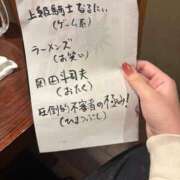 上級騎士なるたい
(ゲーム系)
ラーメンズ
(お笑い)
岡田斗司夫
(おたく)
圧倒的不審者の極み!
(ひまつぶし)